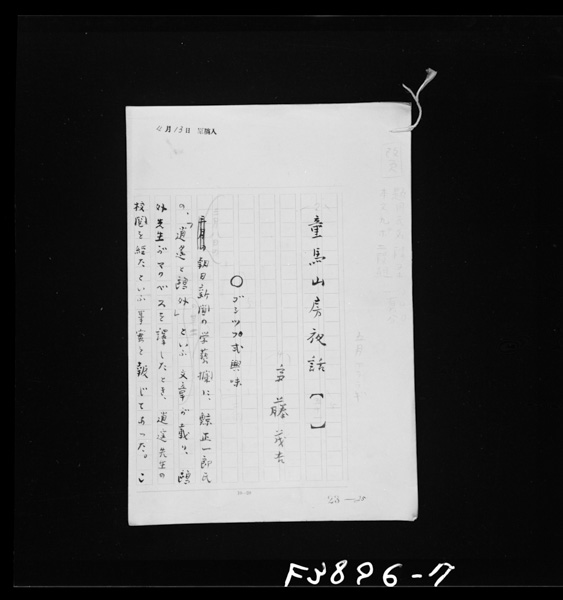 4月13日 星期人
童馬山房夜話【一】
斎藤茂吉
○ゴシツプ式興味
朝日新聞の学藝欄に、 正一郎氏
の、「逍遥と鷗外」といふ文章が載り、鷗
外先生がマクベスを譯したとき、逍遥先生の
校閲を経たといふ事実を報じてあつた。こ
F3896-7